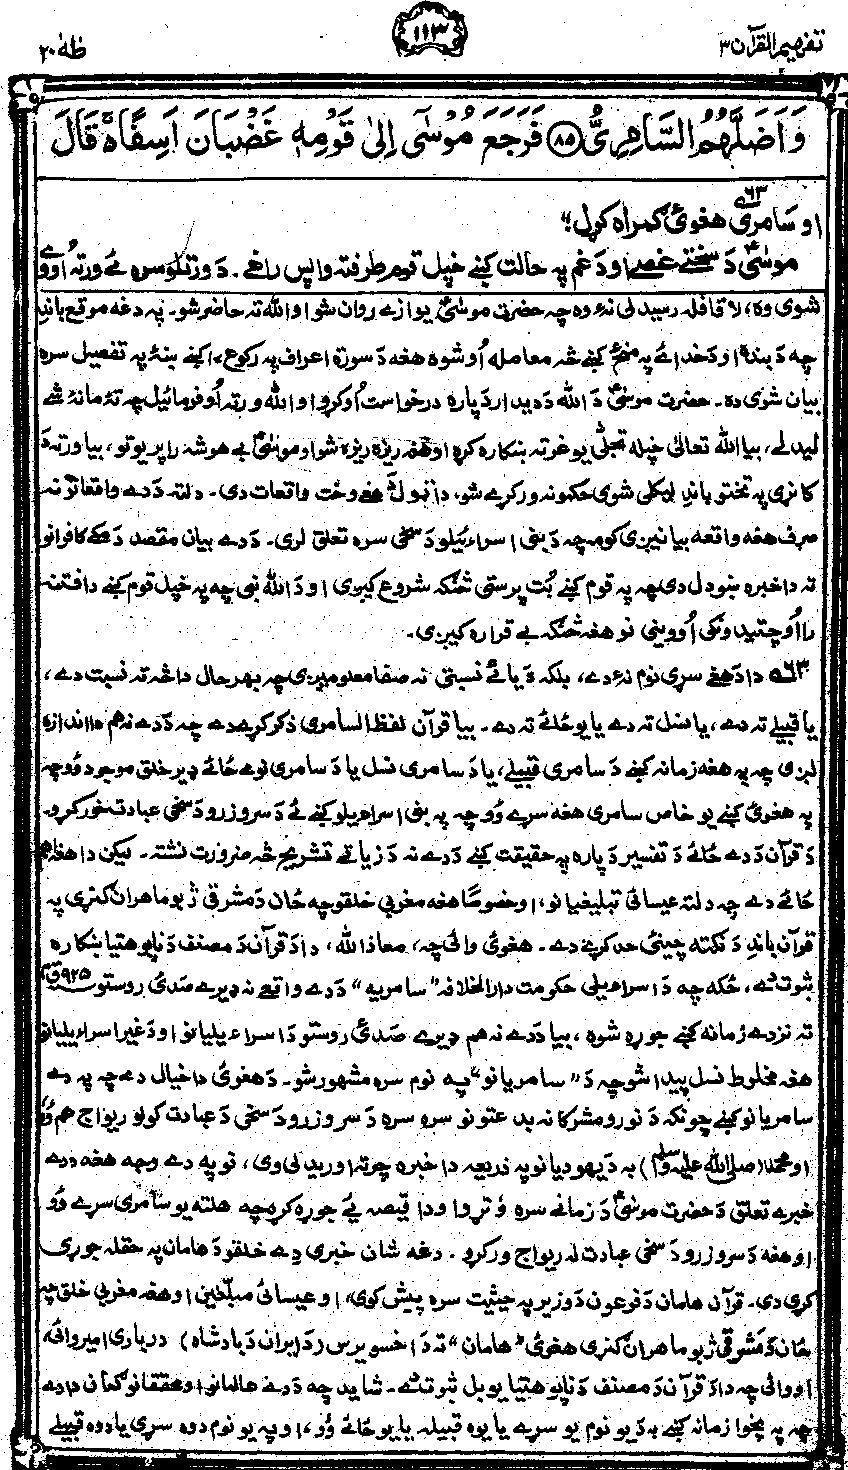 تفہیم القرآن ۳
۱۱۳
طٰہٰ ۲۰
وَاَضَلَّهُمُ السَّامِرِیُّ ﴿۸۵﴾ فَرَجَعَ مُوْسٰۤی اِلٰی قَوْمِهٖ غَضْبَانَ اَسِفًا ۚ۬ قَالَ
او سامری ۶۳ هغوئ گمراه کړل"
موسٰی د سختے غصے او د غم په حالت کښے خپل قوم طرفته واپس راغے. د ورتللو سره ئے ورته اووے
شوی وه، لا قافله رسیدلی نۀ وه چه حضرت موسٰی یواز ے روان شو او الله ته حاضر شو. په دغه موقع باندِ
چه د بنده او د خدائے په منځ کښے څه معامله اُوشوه هغه د سورة اعراف په رکوع کښے بنۀ په تفصیل سره
بیان شوی ده. حضرت موسٰی د الله د دیدار د پاره درخواست اُوکړو او الله ورته اُوفرمائیل چه تۀ ما نۀ شے
لیدلے، بیا الله تعالیٰ خپله تجلّی یو غر ته ښکاره کړه او هغه ریزه ریزه شو او موسٰی بے هوشه راپریوتو، بیا ورته د
کانړی په تختو باندِ لیکلی شوی حکمونه ورکړے شو، دا ټول د هغے وخت واقعات دی. دلته د دے واقعاتو نه
صرف هغه واقعه بیانیږی کومه چه د بنی اسرائیلو د سخی سره تعلق لری. د دے بیان مقصد د مکے کافرانو
ته دا خبره ښودل دی چه په قوم کښے بُت پرستی څنګه شروع کیږی او د الله نبی چه په خپل قوم کښے دا فتنه
را اُوچتیدونکی اُووینی نو هغه څنګه بے قراره کیږی.
۶۳ دا د هغے سړی نوم نۀ دے، بلکه د یائے نسبتی نه صفا معلومیږی چه بهر حال دا څه ته نسبت دے،
یا قبیلے ته دے، یا نسل ته دے یا یو ځائے ته دے. بیا قرآن لفظ السامری ذکر کړے دے چه د دے نه هم دا اندازه
لږی چه په هغه زمانه کښے د سامری قبیلے، یا د سامری نسل یا د سامری نومے ځائے ډیر خلق موجود وُو چه
په هغوئ کښے یو خاص سامری هغه سړے وُو چه په بنی اسرائیلو کښے ئے د سرو زرو د سخی عبادت خور کړو.
د قرآن د دے ځائے د تفسیر د پاره په حقیقت کښے د دے نه د زیاتے تشریح څه ضرورت نشته. لیکن دا هغه اهم
ځائے دے چه دلته عیسائی تبلیغیانو، او خصوصًا هغه مغربی خلقو چه ځان د مشرقی ژبو ماهران ګنړی په
قرآن باندِ د نکته چینئی حد کړے دے. هغوئ وائی چه، معاذ الله، دا د قرآن د مصنف د ناپوهتیا ښکاره
ثبوت دے، ځکه چه د اسرائیلی حکومت دارالخلافه "سامریه" د دے واقعے نه ډیرے صدئ روستو ۹۲۵ ق م
ته نزدے زمانه کښے جوړه شوه، بیا د دے نه هم ډیرے صدئ روستو د اسرائیلیانو او د غیر اسرائیلیانو
هغه مخلوط نسل پیدا شو چه د "سامریانو" په نوم سره مشهور شو. د هغوئ دا خیال دے چه په دے
سامریانو کښے چونکه د نورو مشرکانه بدعتونو سره سره د سرو زرو د سخی د عبادت کولو رواج هم وُو
او محمد (صلی الله علیه وسلم) به د یهودیانو په ذریعه دا خبره چرته اوریدلی وی، نو په دے وجه هغه د دے
خبرے تعلق د حضرت موسٰی د زمانے سره وتړو او دا قیصه ئے جوړه کړه چه هلته یو سامری سړے وُو
او هغه د سرو زرو د سخی عبادت له رواج ورکړو. دغه شان خبرے دے خلقو د هامان په حقله جوړے
کړی دی. قرآن هامان د فرعون د وزیر په حیثیت سره پیش کوی، او عیسائی مبلّغین او هغه مغربی خلق چه
ځان د مشرقی ژبو ماهران ګنړی هغوئ "هامان" ته د اخسویرس (د ایران د بادشاه) درباری امیر وائی،
او وائی چه دا د قرآن د مصنف د ناپوهتیا یو بل ثبوت دے. شاید چه د دے عالمانو او محققانو ګمان دا دے
چه په پخوا زمانه کښے به د یو نوم یو سړے یا یوه قبیله یا یو ځائے وُو، او په یو نوم دوه سړی یا دوه قبیلے